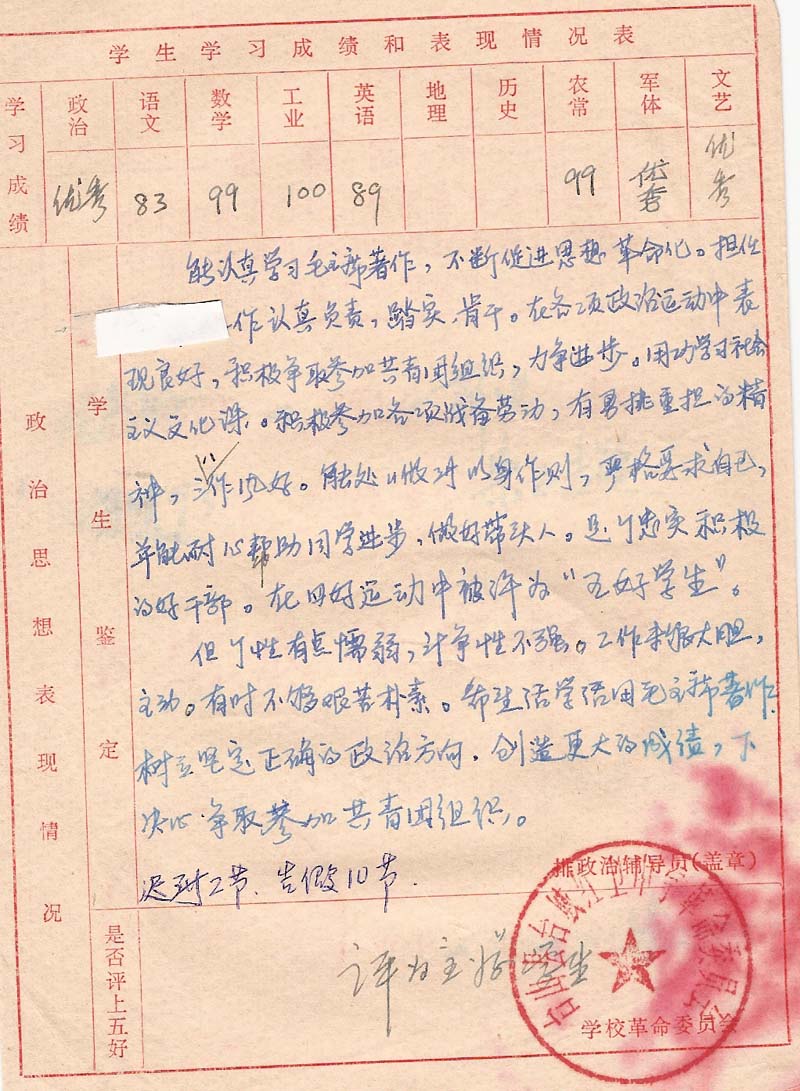 学生学习成绩和表现情况表
学习成绩
政治 语文 数学 工业 英语 地理 历史 农常 军体 文艺
优秀 83 99 100 89 99 优秀 优秀
政治思想表现情况
学生鉴定
能认真学习毛主席著作，不断促进思想革命化。担任
作认真负责，踏实，肯干。在各项政治运动中表
现良好，积极争取参加共青团组织，力争进步。用功学习社会
主义文化课。积极参加各项战备劳动，有勇挑重担的精
神，工作作风好。能处处做到以身作则，严格要求自己，
并能耐心帮助同学进步，做好带头人。是个忠实积极
的好干部。在四好运动中被评为“五好学生”。
但个性有点懦弱，斗争性不强。工作未很大胆，
主动。有时不够艰苦朴素。希生活学活用毛主席著作，
树立坚定正确的政治方向，创造更大的成绩，下
决心争取参加共青团组织。
迟到2节、告假10节.
排政治辅导员(盖章)
是否评上五好
评为五好学生
学校革命委员会